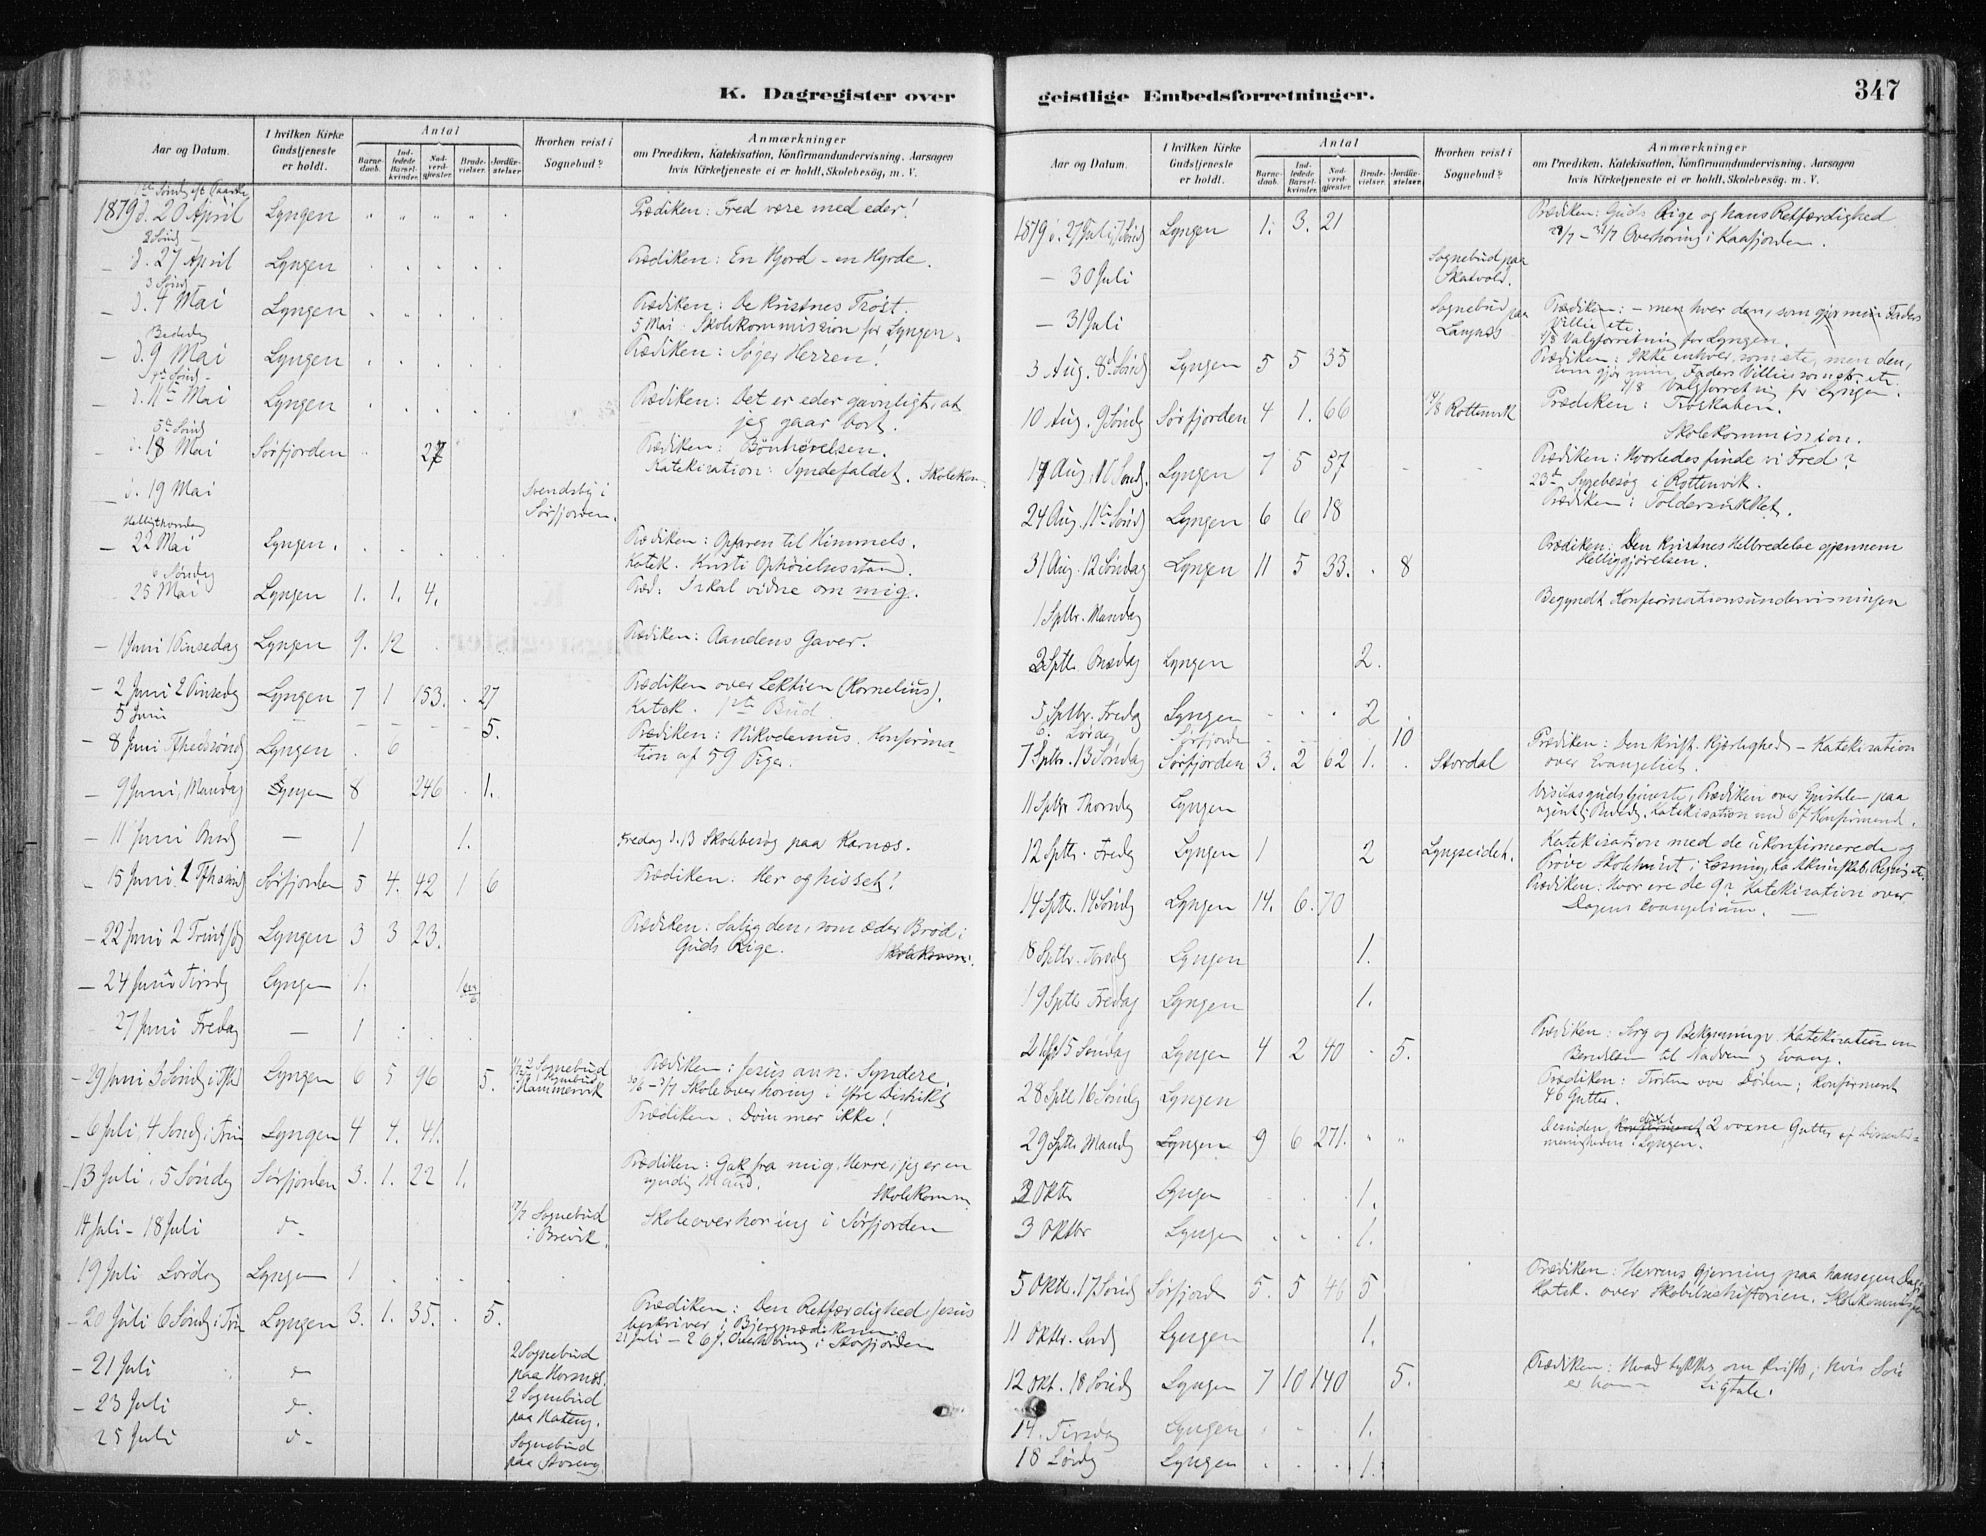 K. Dagregister over
Aar og Datum.
I hvilken Kirke Gudstjeneste er holdt.
Antal
Barnedaab.
Indledede Barselkvinder.
Nadverdgjester.
Brudevielser.
Jordfæstelser.
Hvorhen reist i Sognebud?
Anmærkninger
om Prædiken, Katekisation, Konfirmandundervisning. Aarsagen
hvis Kirketjeneste ei er holdt, Skolebesøg, m. V.
1879 d. 20 April Lyngen " " " " " Prædiken: Fred være med eder!
2 Sønd
– d. 27 April Lyngen . . . . . Prædiken: En Hjord – en Hyrde.
3 Sønd
– d. 4 Mai Lyngen . . . . . Prædiken: De Kristnes Trøst.
5 Mai: Skolekommission for Lyngen.
Bededag
– d. 9 Mai Lyngen . . . . . Prædiken: Søger Herren!
– d. 11te Mai Lyngen . . . . . Prædiken: Det er eder gavnligt, at
jeg gaar bort.
5te Sønd
d. 18 Mai Sørfjorden 27 Prædiken: Bønhørelsen.
Katekisation: Syndefaldet. Skolekom.
– d. 19 Mai Svendsby i
Sørfjorden.
– 22 Mai Lyngen. . . . . . Prædiken: Opfaren til Himmels.
Katek. Kristi Ophøielsesstand.
6 Søndag
25 Mai Lyngen 1. 1. 4. Præd: I skal vidne om mig.
– 1 Juni 1 Pinsedag Lyngen 9. 12 Prædiken: Aandens Gaver.
– 2 Juni 2 Pinsedag Lyngen 7 1 153. . 27 Prædiken over Lektien (Kornelius).
Katek. 1ste Bud
5 Juni – – – – – 5.
– 8 Juni Trefoldsønd Lyngen . 6 Prædiken: Nikodemus. Konfirma-
tion af 59 Piger.
– 9 Juni, Mandag Lyngen 8 246 . 1.
– 11 Juni Onsd – 1 1. Fredag d. 13 Skolebesøg paa Karnæs.
– 15 Juni 1 Sørfjorden 5 4. 42 1 6 Prædiken: Her og hisset!
– 22 Juni 2 Lyngen 3 3 23. Prædiken: Salig den, som æder Brød i
Guds Rige. Skolekomm.
– 24 Juni Tirsd Lyngen 1. 1
27 Juni Fredag – 1
– 29 Juni 3 Sønd Lyngen 6 5 96 5. Sognebud
Hammervik
Prædiken: Jesus ann. Syndere.
30/6 – 3/7 Skoleoverhøring i Ytre Distrikt
– 6 Juli, 4 Sønd i Trin Lyngen 4 4. 41. Prædiken: Dømmer ikke!
– 13 Juli, 5 Søndag Sørfjorden 3. 1. 22 1. Prædiken: Gak fra mig, Herre, jeg er en
syndig Mand. Skolekomm
14 Juli – 18 Juli d– Sognebud
i Brevik. Skoleoverhøring i Sørfjorden
19 Juli Lørdag Lyngen 1
– 20 Juli 6 Sønd i Trin Lyngen 3. 1. 35. . 5. Prædiken: Den Retfærdighed, Jesus
beskriver i Bjergprædikenen.
21 Juli – 26 J. Overhøring i Storfjorden
– 21 Juli d– 2 Sognebud
paa Hornæs.
– 23 Juli d– 2 Sognebud
paa Hateng.
25 Juli d– Sognebud
paa Storeng
geistlige Embedsforretninger.
347
Aar og Datum.
I hvilken Kirke Gudstjeneste er holdt.
Antal
Barnedaab.
Indledede Barselkvinder.
Nadverdgjester.
Brudevielser.
Jordfæstelser.
Hvorhen reist i Sognebud?
Anmærkninger
om Prædiken, Katekisation, Konfirmandundervisning. Aarsagen
hvis Kirketjeneste ei er holdt, Skolebesøg, m. V.
1879 d. 27 Juli 7 Sønd Lyngen 1. 3. 21 Prædiken: Guds Rige og hans Retfærdighed
29/7 – 31/7 Overhøring i Kaafjorden.
– 30 Juli Sognebud paa
Skatvold.
– 31 Juli Sognebud paa
Langnæs
Prædiken: – men hver den, som gjør min Faders
Villie etc.
1/8 Valgforretning for Lyngen.
3 Aug. 8d Sønd Lyngen 5 5 35 Prædiken: Ikke enhver, som etc, men den,
som gjør min Faders Villie etc.
1/8 Valgforretning for Lyngen.
10 Aug. 9 Sønd Sørfjorden 4 1. 66 Rottenvik Prædiken: Troskaben.
Skolekommission.
17 Aug. 10 Sønd. Lyngen 7 5 57 Prædiken: Hvorledes finde vi Fred?
23de Sygebesøg i Rottenvik.
24 Aug. 11te Sønd Lyngen 6 6 18 Prædiken: Toldersukket.
31 Aug. 12 Søndag Lyngen 11 5 33. . 8 Prædiken: Den Kristnes Helbredelse gjennem
Helliggjørelsen.
1 Sptbr. Mandag Begyndt Konfirmationsundervisningen
3 Sptbr. Onsdag Lyngen 2.
5 Sptbr. Fredag Lyngen . . . 2 .
6. Lørdag Sørfjorde 10
7 Sptbr. 13 Søndag Sørfjorden 3. 2 62 1. . Stordal Prædiken: Den krist. Kjærlighed – Katekisation
over Evangeliet.
11 Sptbr Thorsdag Lyngen Visitasgudstjeneste, Prædiken over Epistlen paa
Bededag. Katekisation med 67 Konfirmand.
12 Sptbr. Fredag Lyngen 1 2 Lyngseidet. Katekisation med de ukonfirmerede og
Prøve i Læsning,
14 Sptbr. 14 Sønd Lyngen 14. 6. 70 Prædiken: Hvor ere de 9? Katekisation over
Dagens Evangelium.
18 Sptbr. Torsdag Lyngen 1.
19 Sptbr Fredag Lyngen 1.
21 15 Søndag Lyngen 4 2 40 . 5. Prædiken: Sorg og Bekymring. Katekisation om
til Nadveren og Evang.
28 Sptbr 16 Søndag Lyngen Prædiken: Trøsten over Døden; Konfirmeret
46 Gutter.
29 Sptbr Mandag Lyngen 9 6 271. " " Desuden døbt 2 voxne Gutter af Dissenter-
menigheden i Lyngen.
2 Oktbr Lyngen . . . 1.
3 Oktbr Lyngen . . . 1.
5 Oktbr. 17 Sønd Sørfjord 5. 5 46 5 Prædiken: Herrens Gjerning paa hans egen Dag
Katek. over Skabelseshistorien. Skolekommission
11 Oktbr. Lørd Lyngen 1.
12 Okt. 18 Sønd Lyngen 7 10 140 5. Prædiken: Hvad tykkes om Kristo; hvis Søn
er han – Ligtale.
14. Tirsdag Lyngen . . . 1.
18 Lørdag Lyngen . . . 1.